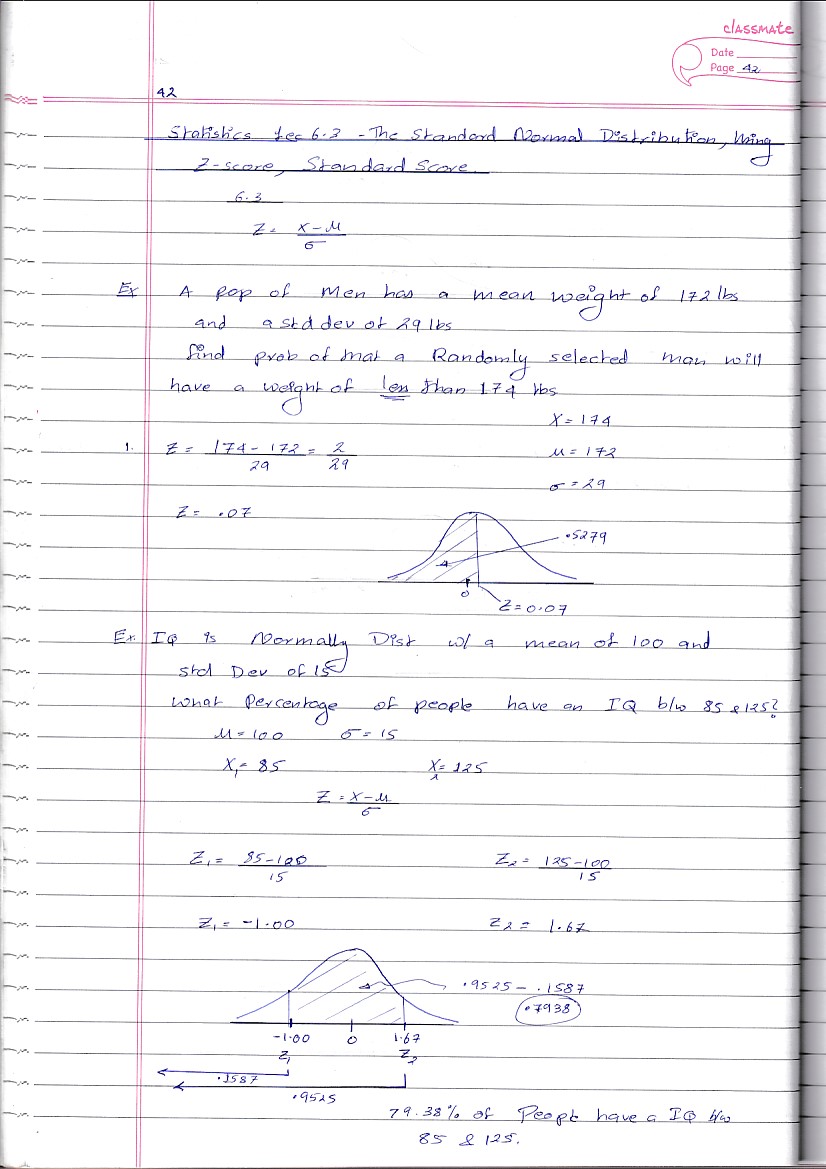 classmate
Date
Page 42
42
Statistics Lec 6.3 - The Standard Normal Distribution, Using
Z-score, Standard Score
6.3
Z = X-μ / σ
Ex A pop of Men has a mean weight of 172 lbs
and a std dev of 29 lbs
find prob of that a Randomly selected man will
have a weight of less than 174 lbs
X = 174
1. Z = 174-172 / 29 = 2 / 29
μ = 172
σ = 29
Z = .07
.5279
0
Z = 0.07
Ex. IQ is Normally Dist w/ a mean of 100 and
std Dev of 15
What Percentage of people have an IQ b/w 85 & 125?
μ = 100 σ = 15
X₁ = 85 X₂ = 125
Z = X-μ / σ
Z₁ = 85-100 / 15 Z₂ = 125-100 / 15
Z₁ = -1.00 Z₂ = 1.67
.9525 - .1587
.7938
-1.00 0 1.67
Z₁ Z₂
.1587
.9525
79.38% of People have a IQ b/w
85 & 125.